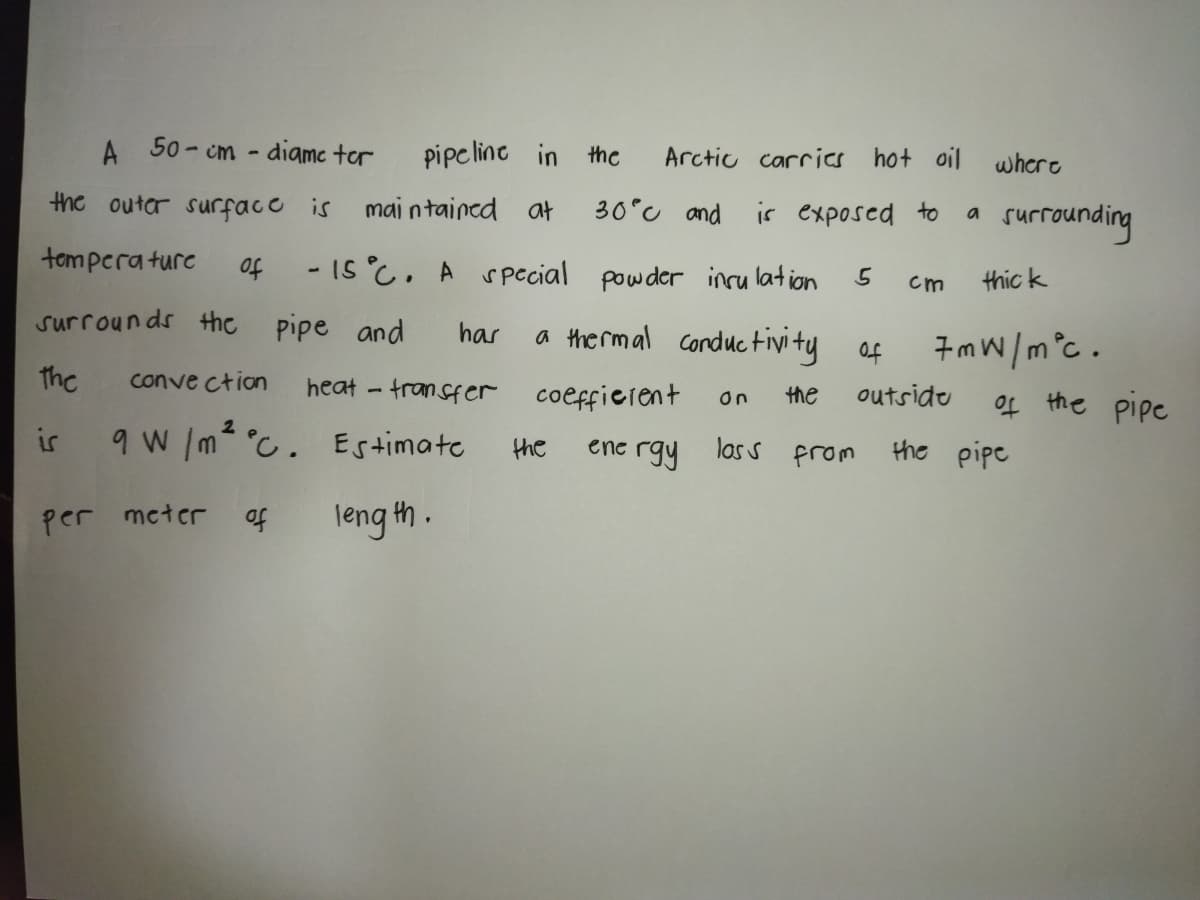 A 50-cm-diameter pipeline in the Arctic carries hot oil where
the outer surface is maintained at 30°C and is exposed to a surrounding
temperature of -15°C. A special powder insulation 5 cm thick
surrounds the pipe and has a thermal conductivity of 7mW/m°C.
The convection heat-transfer coefficient on the outside of the pipe
is 9 W/m² °C. Estimate the energy loss from the pipe
per meter of length.